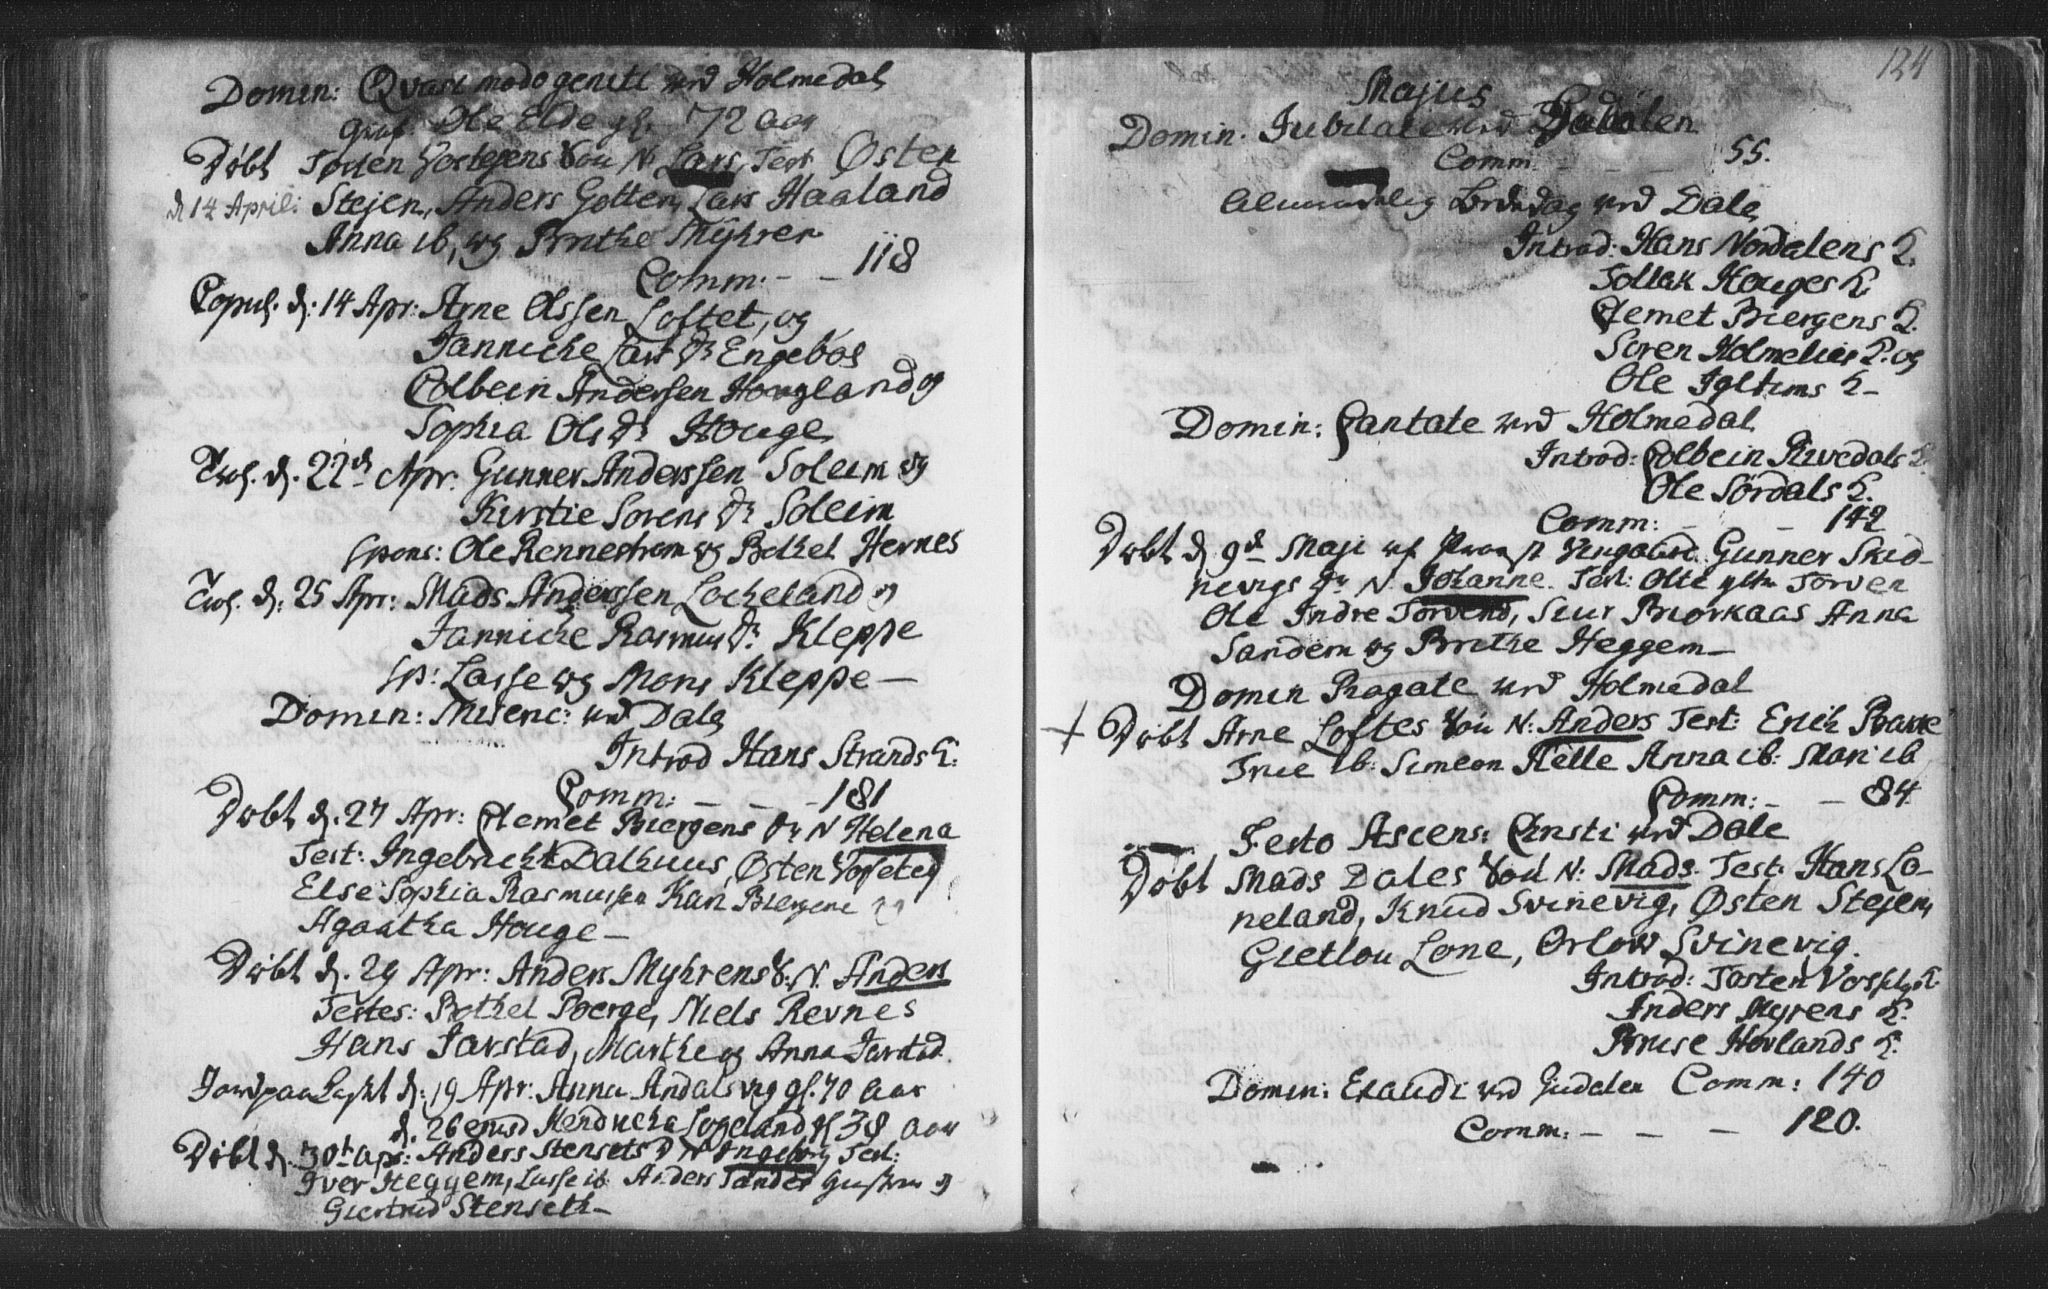 Domin: Qvasi modo geniti ved Holmedal
Graf: Ole Elde gl. 72 aar
Døbt Tosten Vostejens Søn N: Lars, Test Østen
d 14 April: Stejen, Anders Gotten, Lars Haaland
Anna ib, og Brithe Myhren
Comm: - - 118
Copul. d: 14 Apr: Arne Olssen Loftet, og
Jannicke Lars Dr Engebøs
Colbein Anderssen Hougland og
Sophia Ols dr Houge
Trol. d. 22d Apr. Gunner Anderssen Soleim og
Kirstie Sorens dr Soleim
Spons: Ole Rennestrøm og Bothel Hernes
Trol. d: 25 Apr: Mads Anderssen Lockeland og
Jannicke Rasmus dr Kleppe
Sp: Lasse og Mons Kleppe -
Domin: Miseric: ved Dale
Introd Hans Strands K:
Comm: - - - 181
Døbt d. 27 Apr: Clemet Biergens dr N Helena
Test: Ingebricht Dalhuus, Østen
Else Sophia Rasmussen Kari Biergene
Agaatha Houge -
Døbt d. 29 Apr: Anders Myhrens S. N. Anders
Testes: Bothel Berge, Niels Revnes
Hans Jarstad, Marthe og Anna Jarstad.
Jordpaakast d: 19 Apr: Anna Andalsvig gl. 70 aar
d. 26 ejusd Hendricka Logeland gl 38 aar
Døbt d. 30t apr: Anders Stensets D N Ingeborg Test:
Iver Heggem, Lasse ib Anders Tander og
Giertrud Stenseth -
124
Majus
Domin. Jubilate ved Gudalen
Comm - - - 55.
Almindelig Bededag ved Dale
Introd: Hans Nordalens K.
Tollak Houges K.
Clemet Biergens K.
Soren Holmelies K. og
Ole Igltims K -
Domin: Cantate ved Holmedal
Introd: Colbein Rivedals K
Ole Sørdals K.
Comm: - - 142
Døbt d 9d Maji af Gunner Skid-
nevigs dr N. Johanne Test: Torven
Ole Indre Torvend, Siur Biorkaas Anna
Sandem og Brithe Heggem -
Domin Rogate ved Holmedal
+ Døbt Arne Loftes Søn N: Anders Test: Erich
Trie ib: Simeon Helle Anna ib: Mari ib
Comm: - - 84
Festo Ascens: Christi ved Dale
Døbt Mads Dales Søn N: Mads. Test: Hans Lo-
neland, Knud Svinevig, Østen Stejen,
Gietlou Lone, Orlow Svinevig.
Introd: Tosten K.
Anders Myrens K.
Hovlands K.
Domin: Exaudi ved Gudalen Comm: 140
Comm: - - - 120.